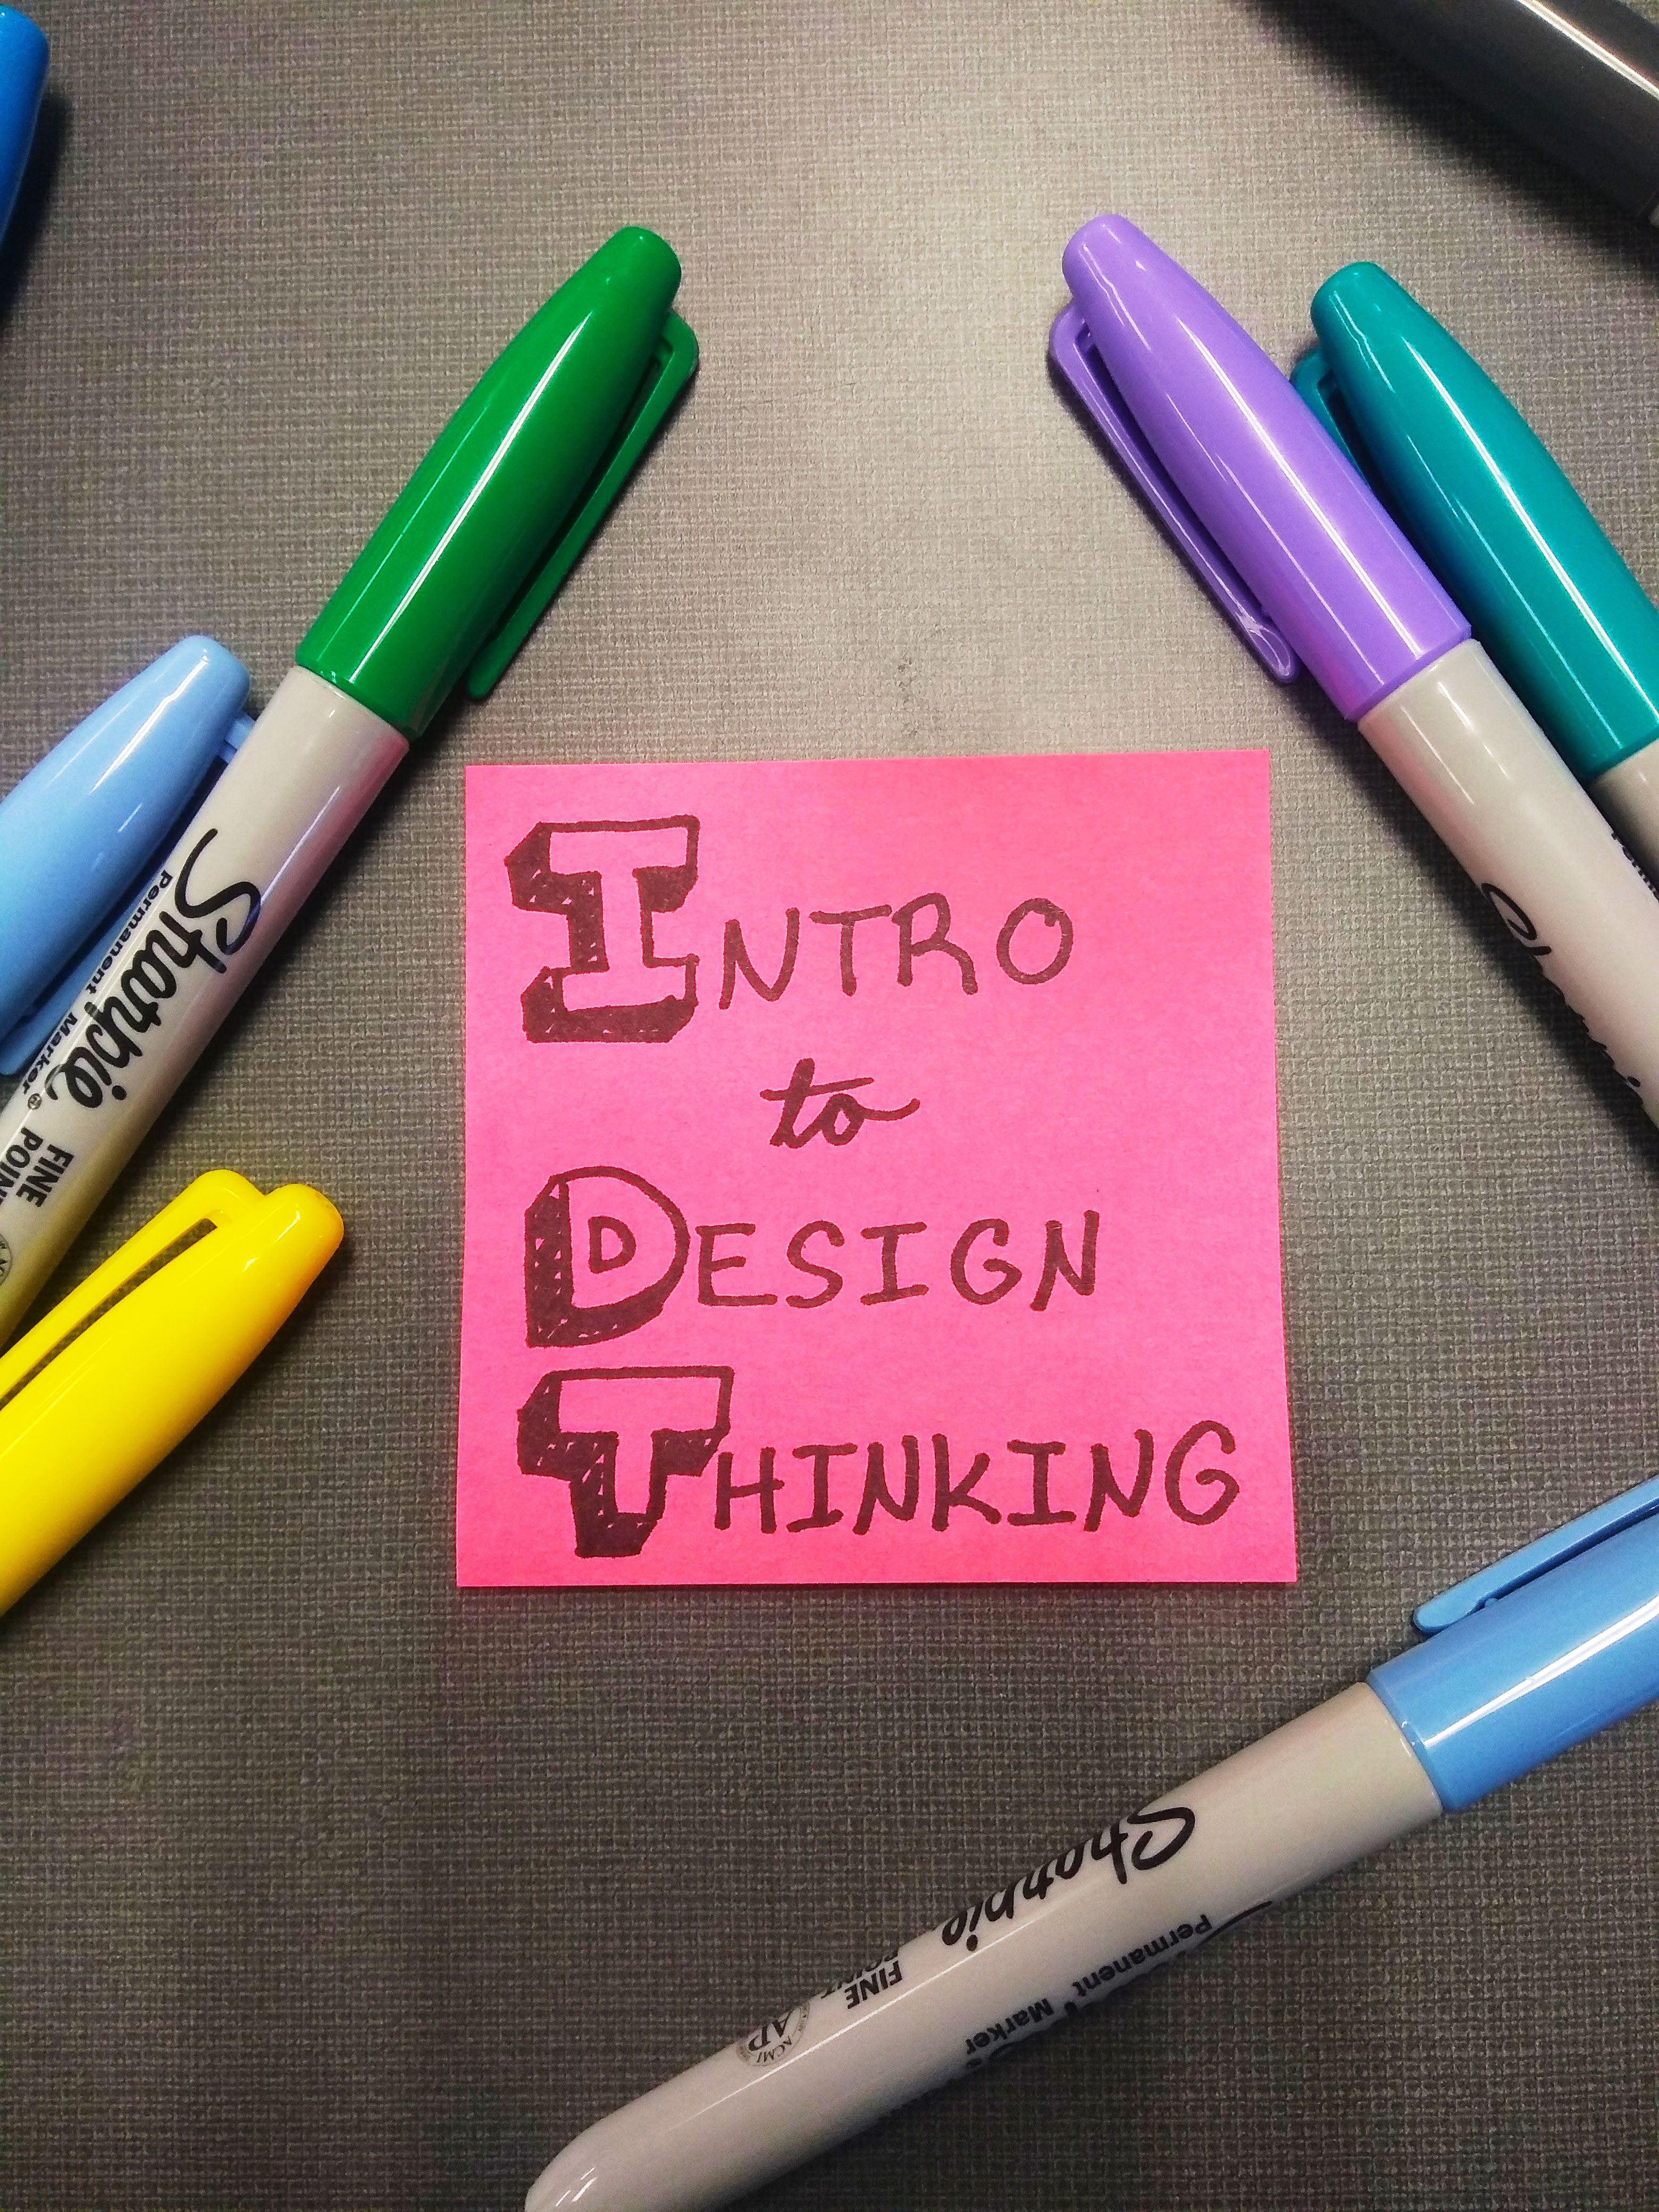 INTRO
to
DESIGN
THINKING
Sharpie
Permanent Marker
FINE
POINT
Sharpie
Permanent Marker
FINE
POINT
AP